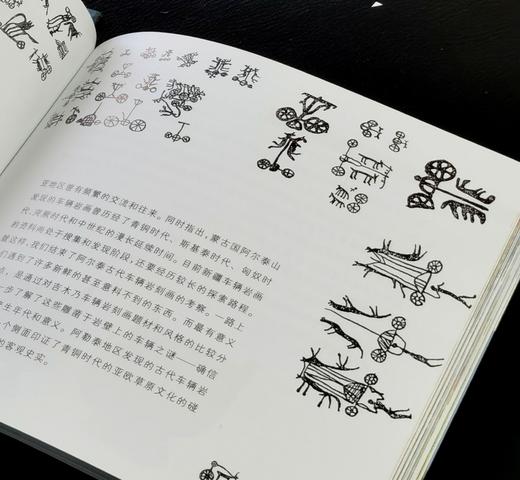 亚地区曾有频繁的交流和往来。同时指出,蒙古国阿尔泰山
发现的车辆岩画曾历经了青铜时代、斯基泰时代、匈奴时
代、突厥时代和中世纪的漫长延续时间。目前新疆车辆岩画
的资料尚处于搜集和发现阶段,还要经历较长的探索路程。
就这样,我们结束了阿尔泰古代车辆岩刻画的考察。一路上
们遇到了许多新鲜的甚至意料不到的东西。而最有意义
,是通过对吉木乃车辆岩刻画题材和风格的比较分
一步了解了这些雕凿于岩壁上的车辆之谜——确信
产生年代和意义。阿勒泰地区发现的古代车辆岩
个侧面印证了青铜时代的亚欧草原文化的碰
的客观史实。